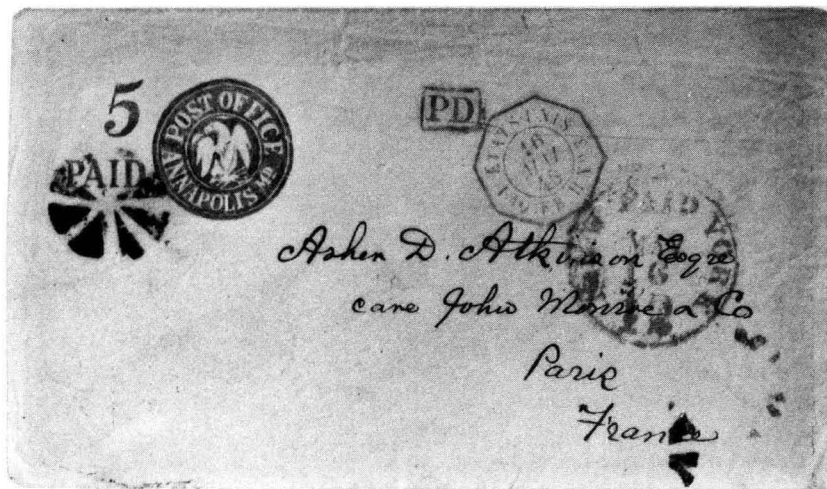 5
PAID
POST OFFICE
ANNAPOLIS Md
PD
ETATS-UNIS
16
PAID
YORK
Asher D. Atkinson Esqre
care John Monroe & Co
Paris
France